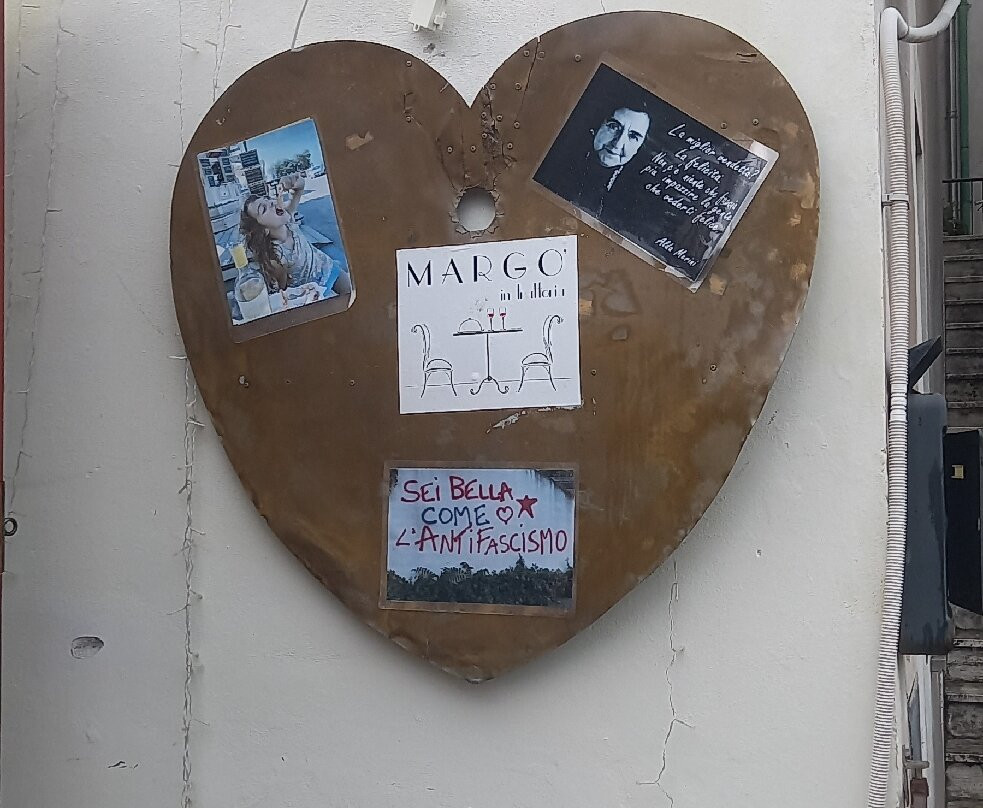 La miglior vendetta?
La felicità.
Non c'è niente che faccia
più impazzire la gente
che vederti felice.
Alda Merini
MARGO'
in trattoria
SEI BELLA
COME
L'ANTIFASCISMO